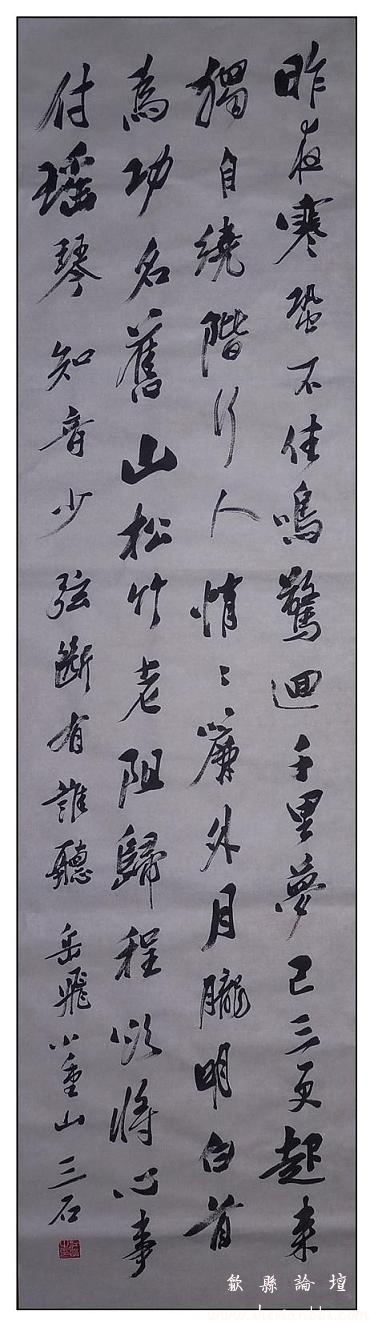 昨夜寒蛩不住鳴驚迴千里夢已三更起来
獨自繞階行人悄々簾外月朧明白首
為功名舊山松竹老阻歸程欲將心事
付瑶琴知音少弦斷有誰聽 岳飛小重山 三石
歙縣論壇